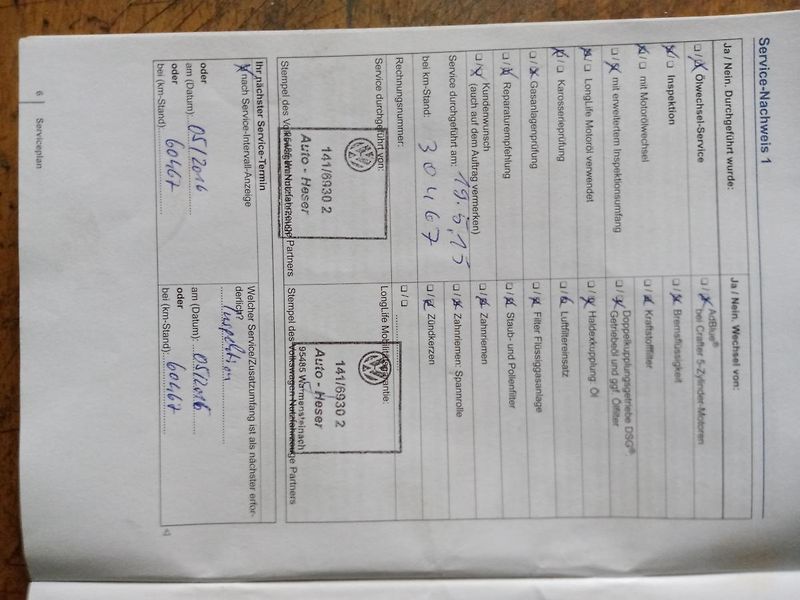 Service-Nachweis 1
Ja / Nein. Durchgeführt wurde:
Ölwechsel-Service
Inspektion
mit Motorölwechsel
mit erweitertem Inspektionsumfang
LongLife Motoröl verwendet
Karosserieprüfung
Gasanlagenprüfung
Reparaturempfehlung
Kundenwunsch
(auch auf dem Auftrag vermerken)
Service durchgeführt am: 19.5.15
bei km-Stand: 30467
Rechnungsnummer:
Service durchgeführt von:
141/6930 2
Auto - Heser
Stempel des Volkswagen Nutzfahrzeuge Partners
Ja / Nein. Wechsel von:
AdBlue®
bei Crafter 5-Zylinder-Motoren
Bremsflüssigkeit
Kraftstofffilter
Doppelkupplungsgetriebe DSG®
Getriebeöl und ggf. Ölfilter
Haldexkupplung: Öl
Luftfiltereinsatz
Filter Flüssiggasanlage
Staub- und Pollenfilter
Zahnriemen
Zahnriemen: Spannrolle
Zündkerzen
LongLife Mobilitätsgarantie:
141/6930 2
Auto - Heser
95485 Warmensteinach
Stempel des Volkswagen Nutzfahrzeuge Partners
Ihr nächster Service-Termin
nach Service-Intervall-Anzeige
oder
am (Datum): 05/2016
oder
bei (km-Stand): 60467
Welcher Service/Zusatzumfang ist als nächster erfor-
derlich?
Inspektion
am (Datum): 05/2016
oder
bei (km-Stand): 60467
6 Serviceplan